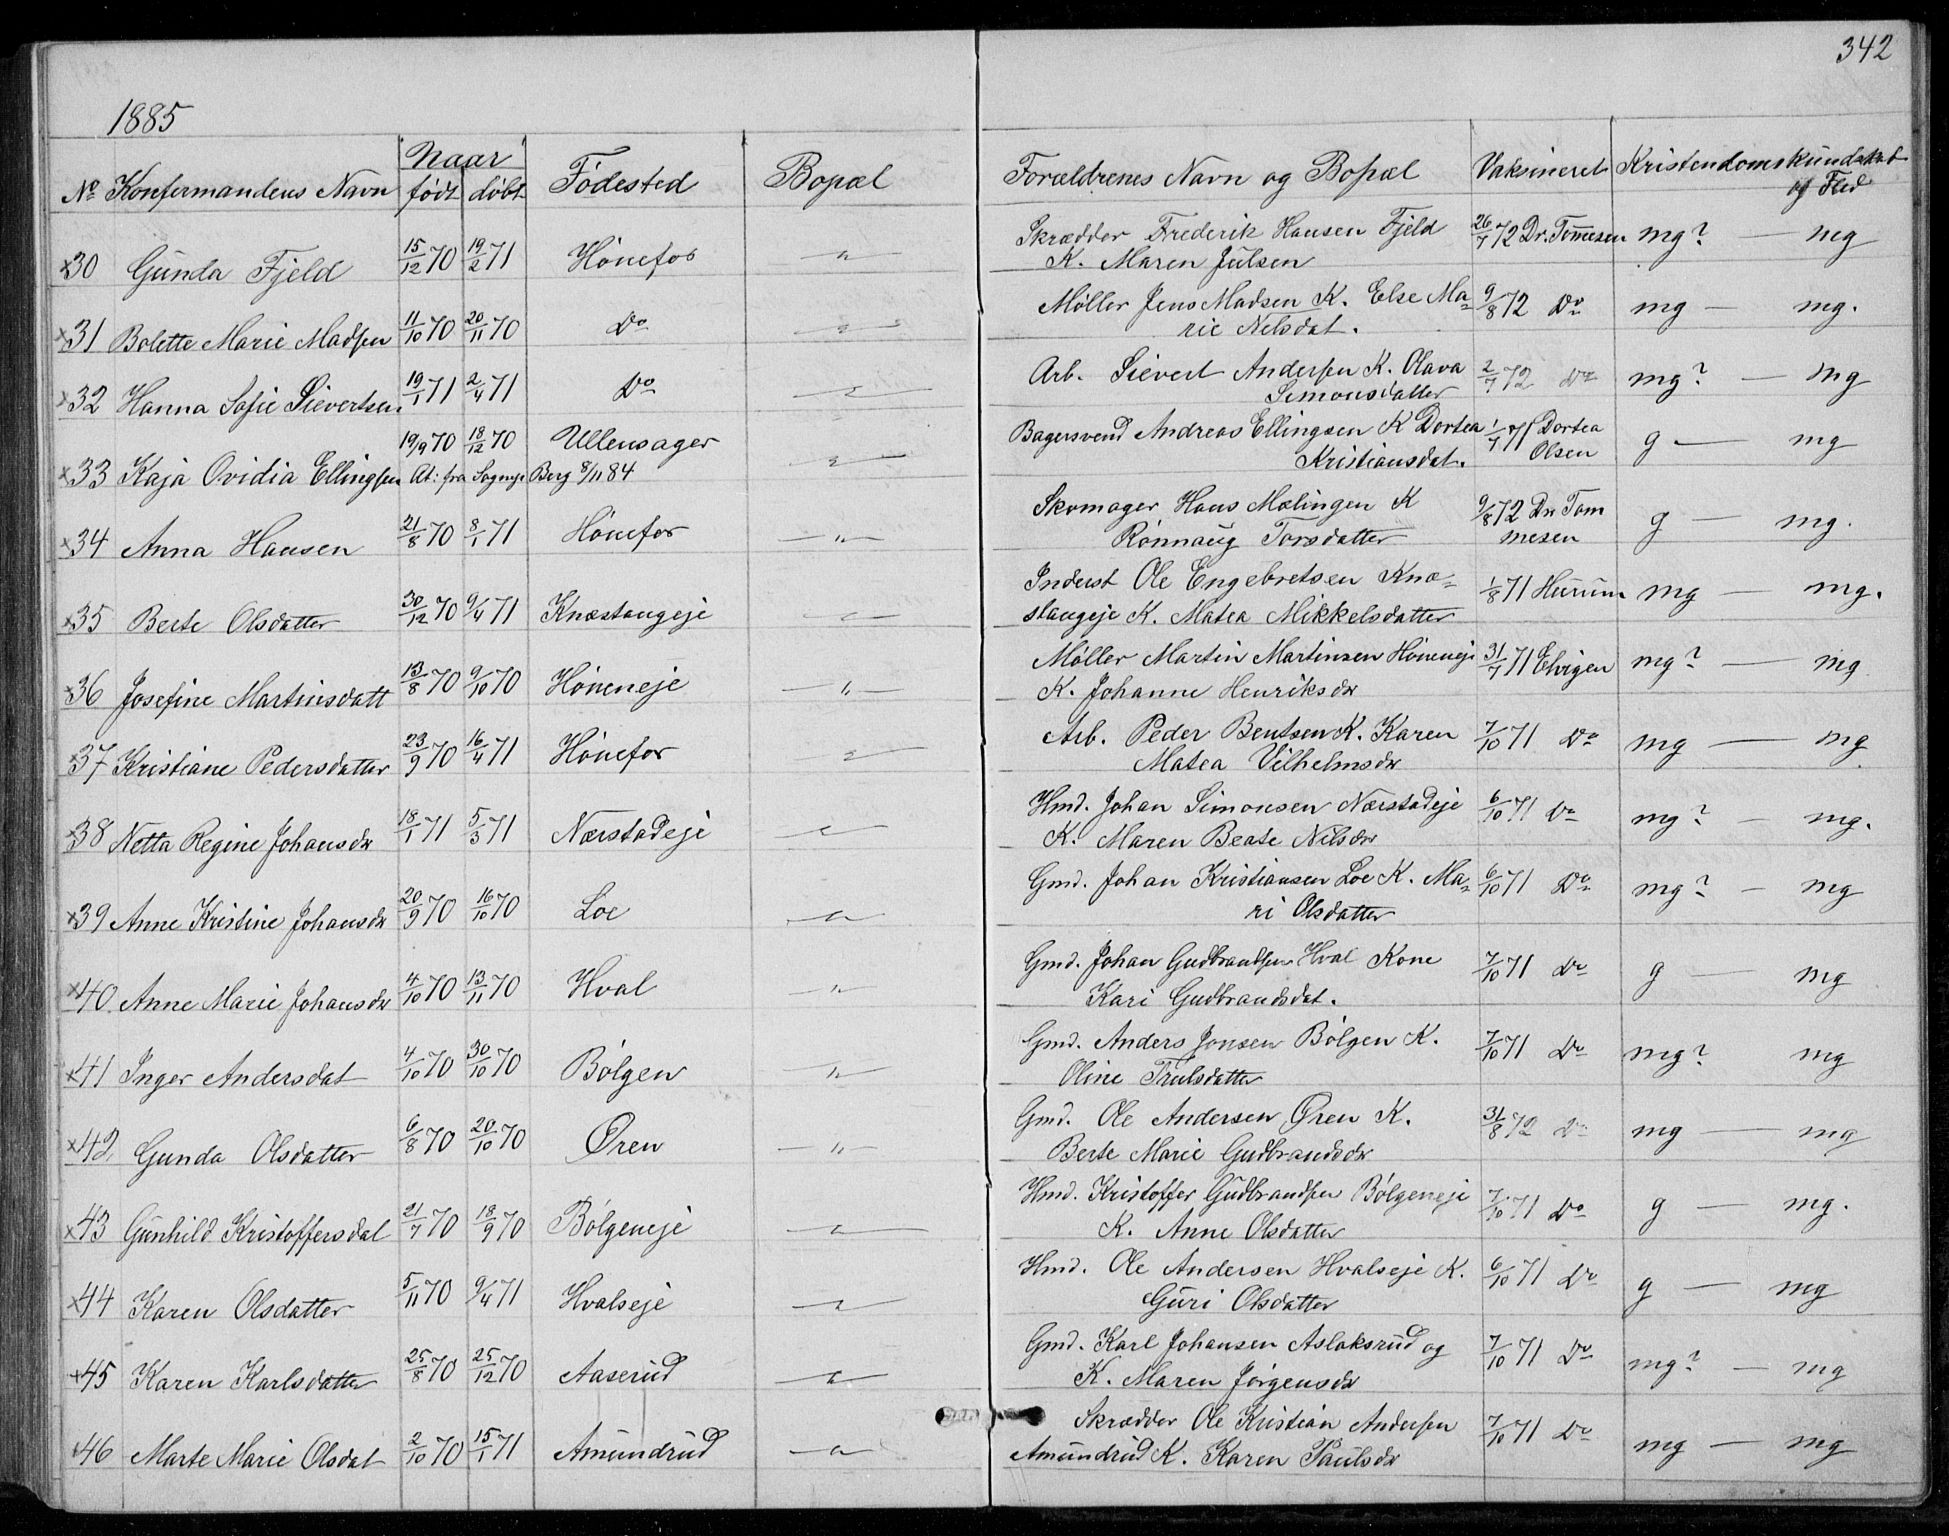 342
1885
Naar
No Konfermandens Navn født døbt Fødested Bopæl Forældrenes Navn og Bopæl Vaksineret Kristendomskundskab
og Flid
x30 Gunda Fjeld 15/12 70 19/2 71 Hønefos — " — Skrædder Frederik Hansen Fjeld 26/7 72 Dr. Tomesen mg? — mg
K. Maren Julsen
x31 Bolette Marie Madsen 11/10 70 20/11 70 Do — " — Møller Jens Madsen K. Else Ma= 9/8 72 Do mg — mg.
rie Nelsdat.
x32 Hanna Sofie Sievertsen 19/1 71 2/4 71 Do — " — Arb. Sievert Andersen K. Olava 2/7 72 Do mg? — mg
Simonsdatter
19/9 70 18/12 70 Ullensager — " — Bagersvend Andreas Ellingsen K Dortea 1/7 71 Dortea g — mg
x33 Kaja Ovidia Ellingsen At: fra Sognep. Berg 8/11 84 Kristiansdat. Olsen
x34 Anna Hansen 21/8 70 8/1 71 Hønefos — " — Skomager Hans Mælingen K 9/8 72 Dr. Tom g — mg.
Rønnaug Torsdatter mesen
x35 Berte Olsdatter 30/12 70 9/4 71 Knæstangeje — " — Inderst Ole Engebretsen Knæ= 1/8 71 Hurum mg — mg.
stangeje K. Matea Mikkelsdatter
x36 Josefine Martinsdatt 13/8 70 9/10 70 Høneneje — " — Møller Martin Martinsen Høneneje 31/7 71 Ehrgen mg? — mg
K. Johanne Henriksdr
x37 Kristiane Pedersdatter 23/9 70 16/4 71 Hønefos — " — Arb. Peder Bentsen K. Karen 7/10 71 Do mg — mg
Matea Vilhelmsdr
x38 Netta Regine Johansdr 18/1 71 5/3 71 Nærstadeje — " — Hmd. Johan Simonsen Nærstadeje 6/10 71 Do mg? — mg.
K. Maren Beate Nilsdr
x39 Anne Kristine Johansdr 20/9 70 16/10 70 Loe — " — Gmd. Johan Kristiansen Loe K. Ma= 6/10 71 Do mg? — mg
ri Olsdatter
x40. Anne Marie Johansdr 4/10 70 13/11 70 Hval — " — Gmd. Johan Gudbrandsen Hval Kone 7/10 71 Do g — mg
Kari Gudbrandsdat.
x41 Inger Andersdat 4/10 70 30/10 70 Bølgen — " — Gmd. Anders Jonsen Bølgen K. 7/10 71 Do mg? mg
Oline Trulsdatter
x42 Gunda Olsdatter 6/8 70 20/10 70 Øren — " — Gmd. Ole Andersen Øren K. 31/8 72 Do mg — mg
Berte Marie Gudbrandsdr
x43 Gunhild Kristoffersdat 21/7 70 18/9 70 Bølgeneje — " — Hmd. Kristoffer Gudbrandsen Bølgeneje 7/10 71 Do g — mg.
K. Anne Olsdatter
x44 Karen Olsdatter 5/11 70 9/4 71 Hvalseje — " — Hmd. Ole Andersen Hvalseje K. 6/10 71 Do g — mg
Guri Olsdatter
x45 Karen Karlsdatter 25/8 70 25/12 70 Aaserud — " — Gmd. Karl Johansen Aslaksrud og 7/10 71 Do mg? — mg
K. Maren Jørgensdr
46 Marte Marie Olsdat 2/10 70 15/1 71 Amundrud — " — Skrædder Ole Kristian Andersen 7/10 71 Do mg — mg
Amundrud K. Karen Paulsdr